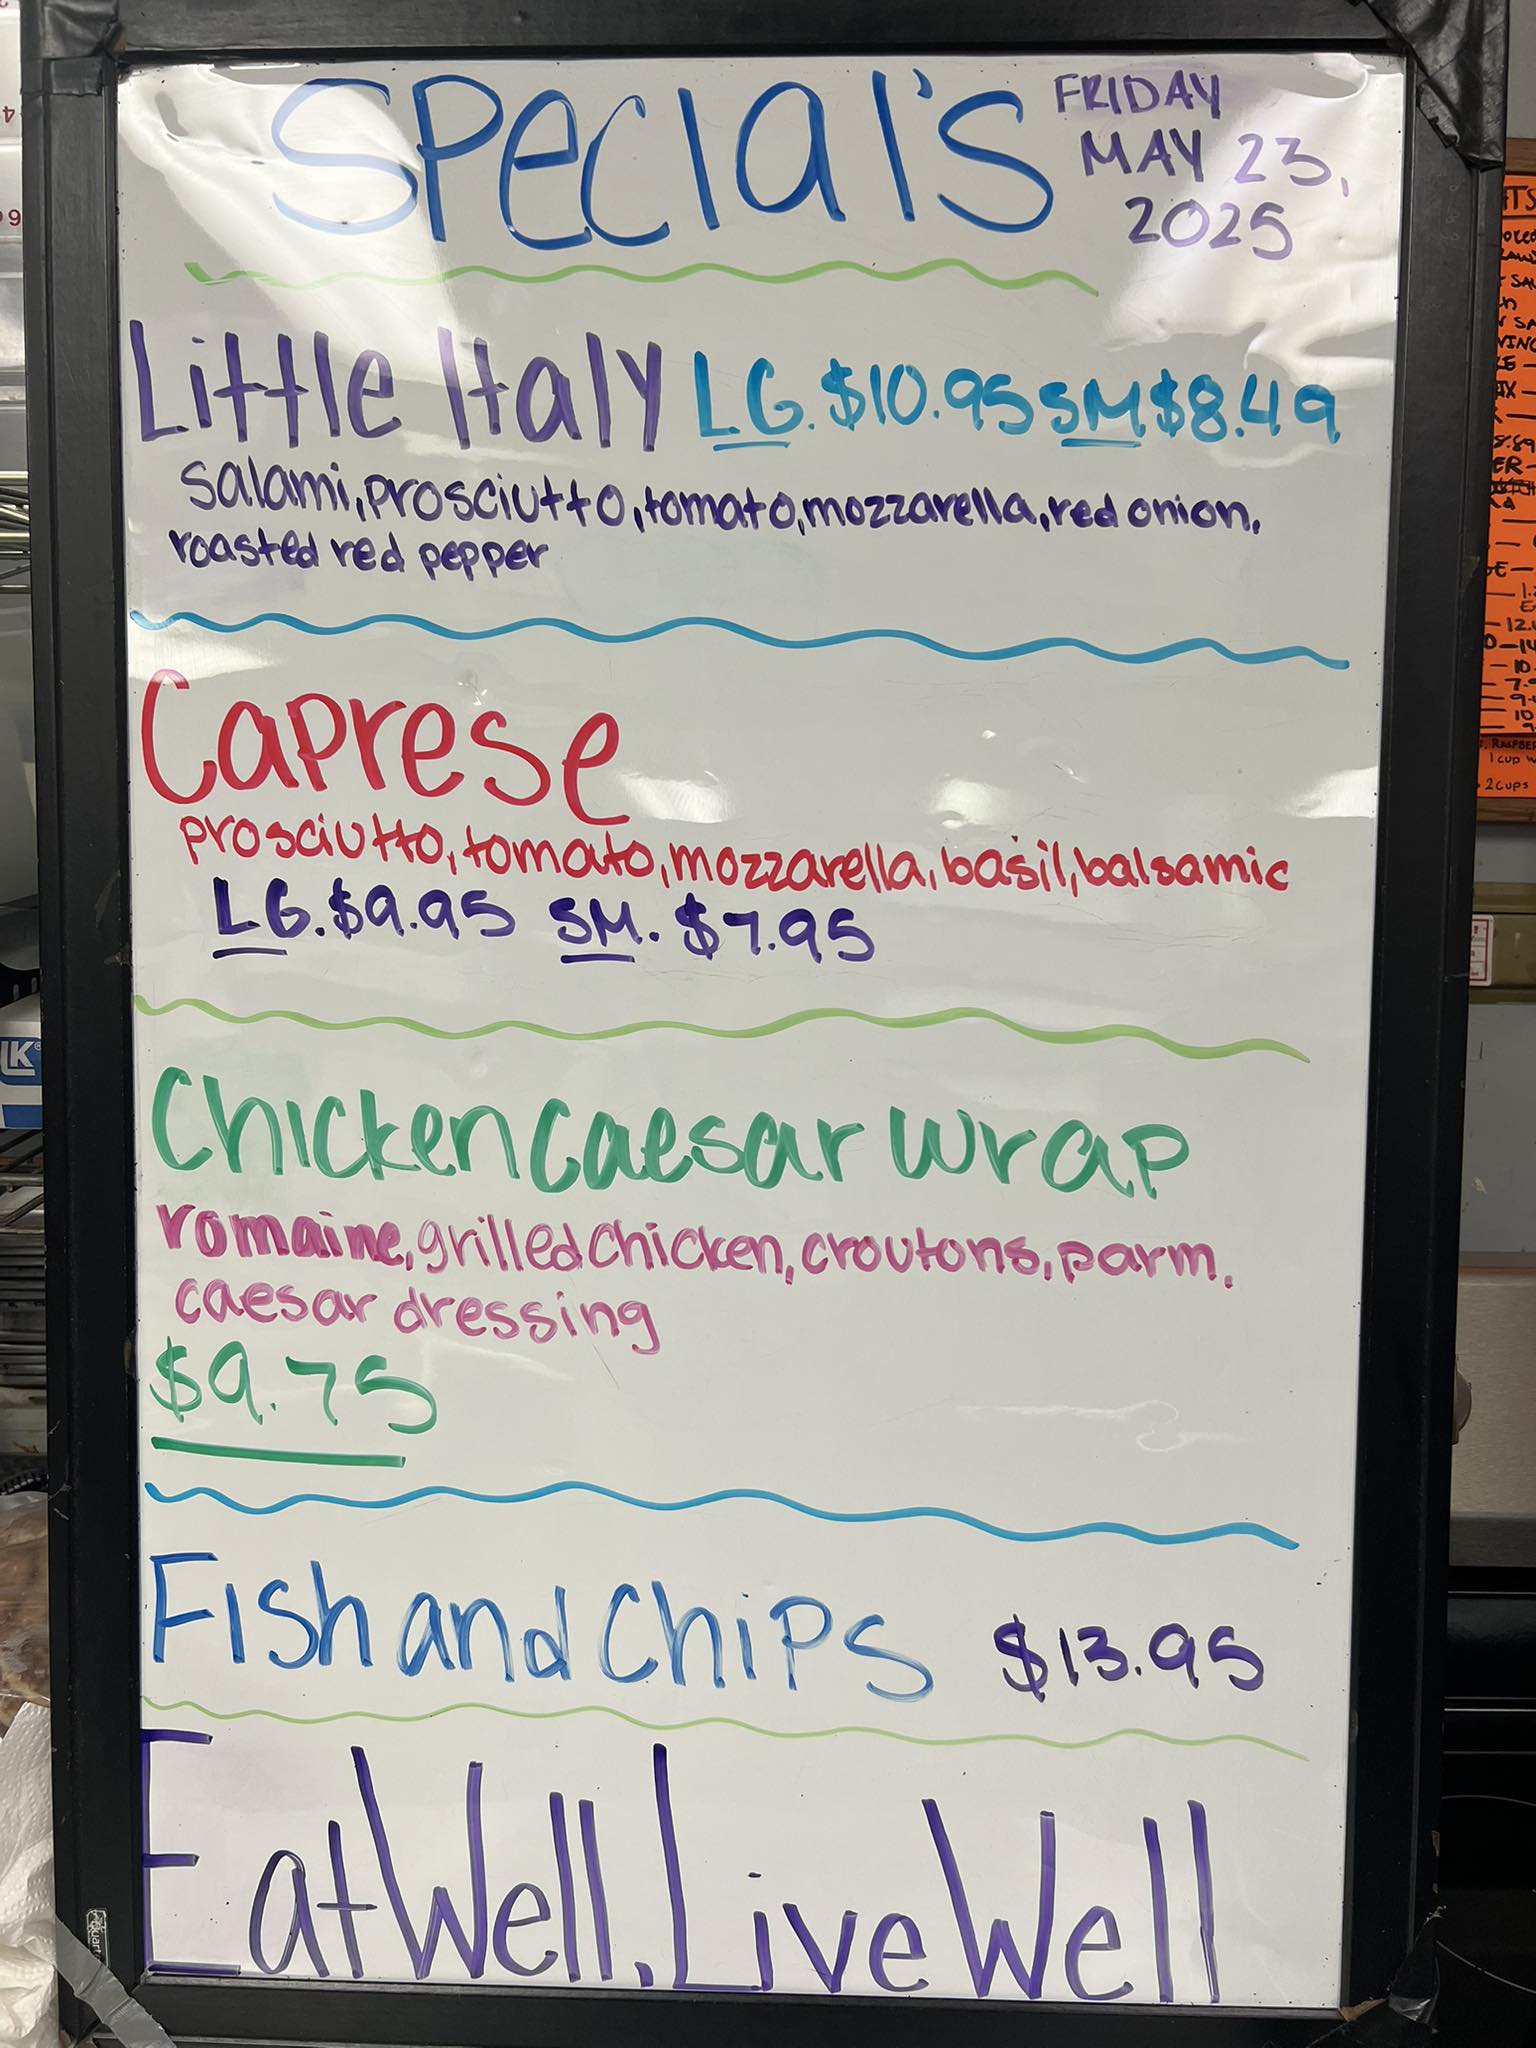 Special's
FRIDAY
MAY 23,
2025
Little Italy LG. $10.95 SM $8.49
salami, prosciutto, tomato, mozzarella, red onion,
roasted red pepper
Caprese
prosciutto, tomato, mozzarella, basil, balsamic
LG. $9.95 SM. $7.95
Chicken Caesar Wrap
romaine, grilled chicken, croutons, parm,
caesar dressing
$9.75
Fish and Chips $13.95
Eat Well, Live Well
LK
1 CUP
2 CUPS